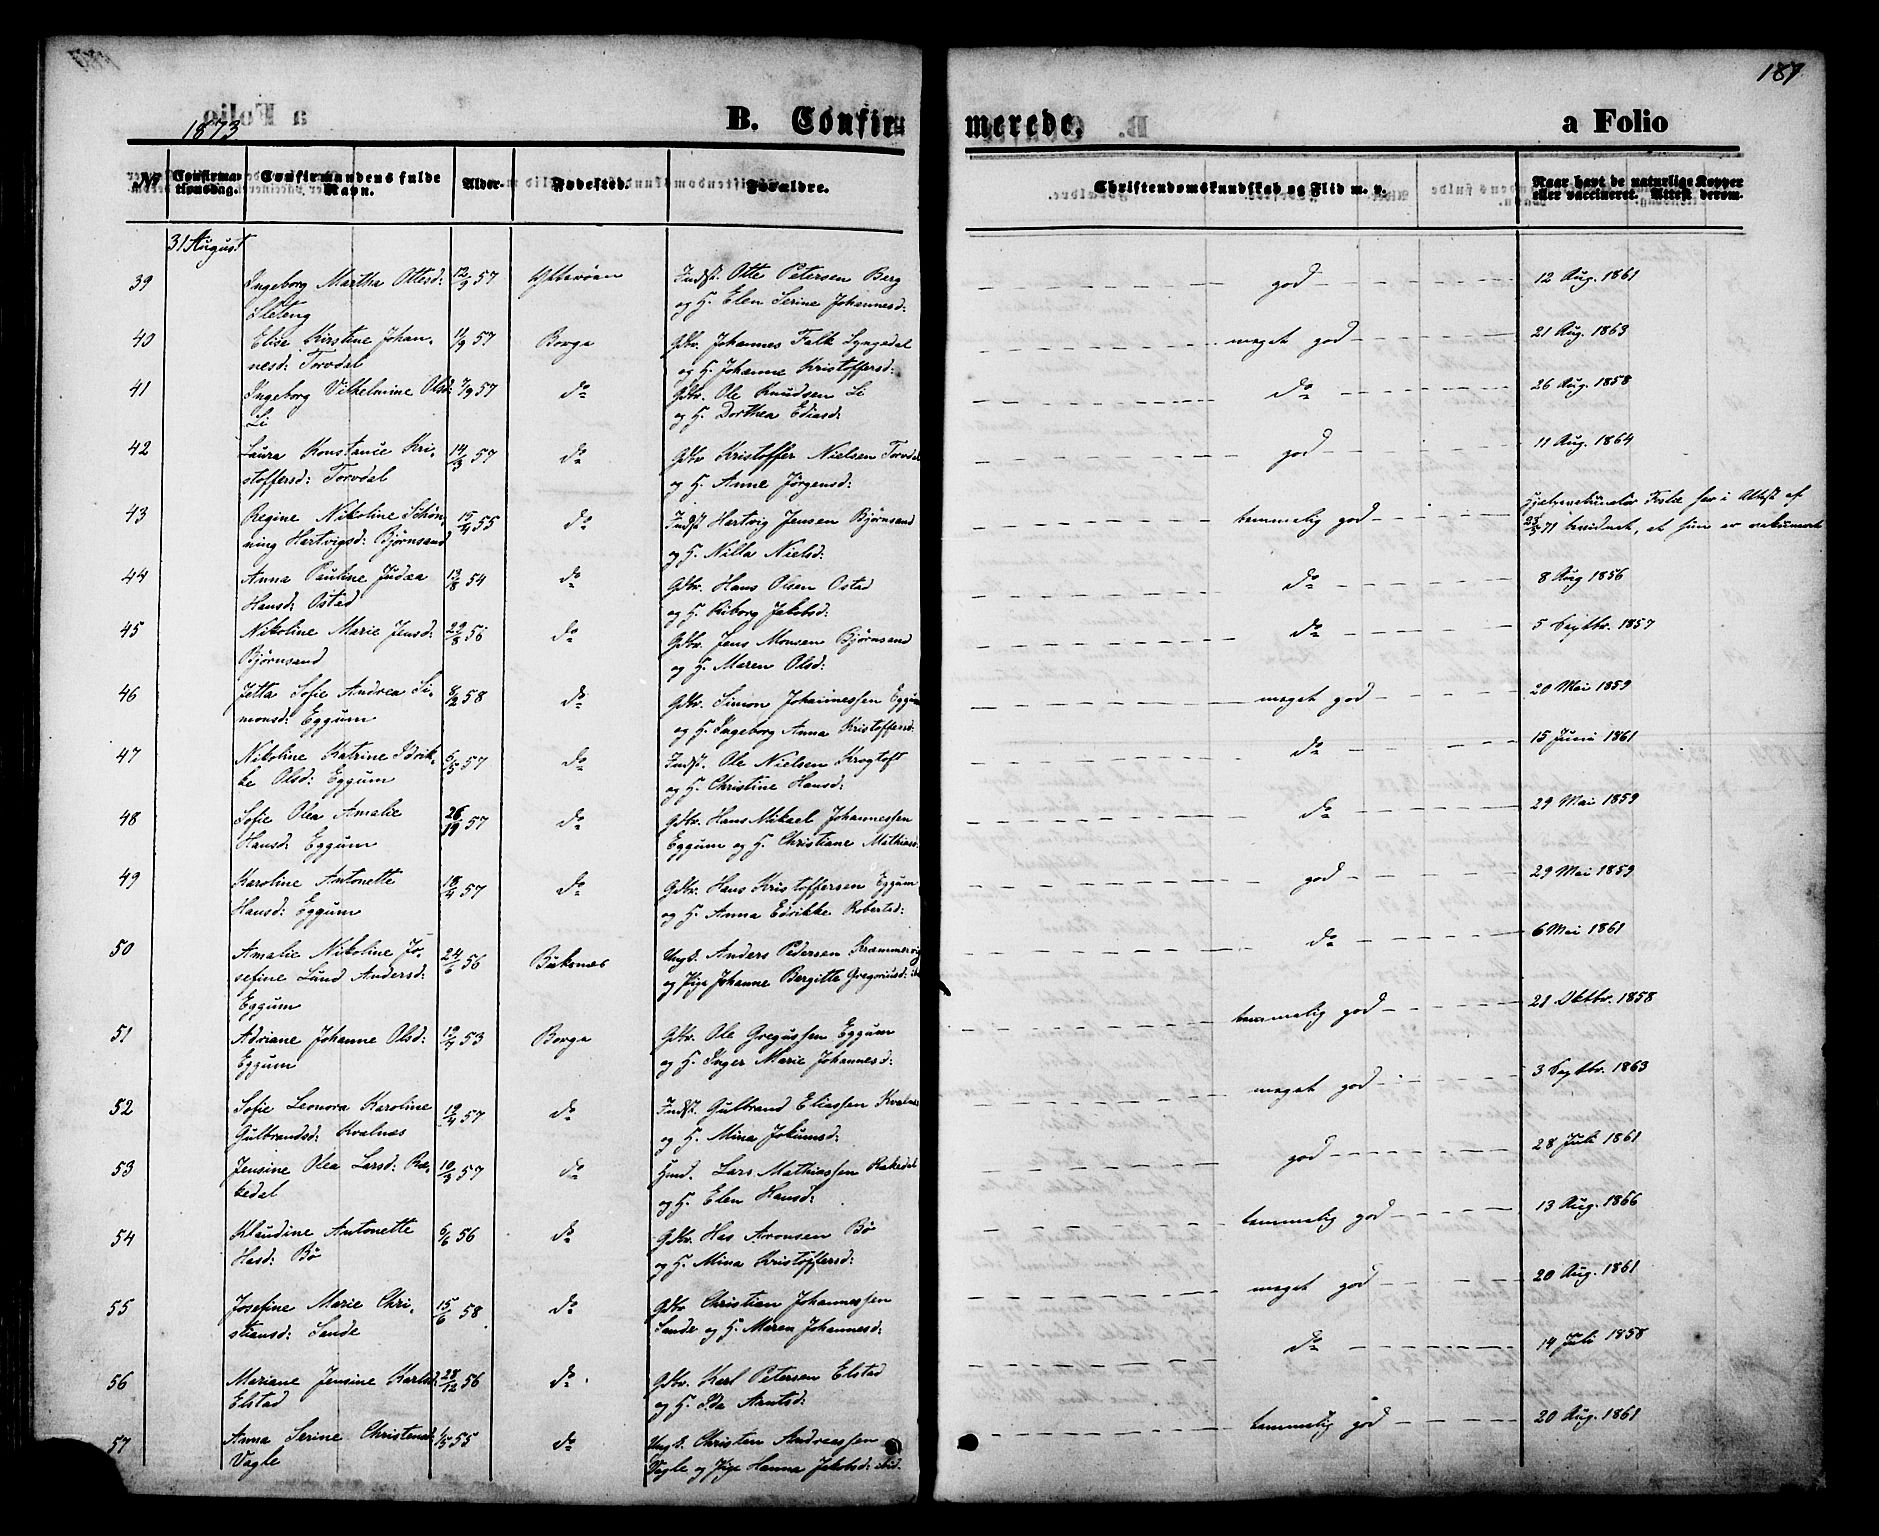 187
1873
B. Confirmerede. a Folio
No Confirmationsdag. Confirmandens fulde Navn. Alder. Fødested. Forældre. Christendomskundskab og Flid m. v. Naar havt de naturlige Kopper eller vaccineret. Attest derom.
31 August
39 Ingeborg Martha Ottesd: 12/9 57 Indst. Otte Petersen Berg god 12 Aug. 1861
Sleteng og H. Elen Serine Johannesd:
40 Elise Kirstine Johan- 11/9 57 Borge Gbr. Johannes Falk Lyngedal meget god 21 Aug. 1863
nesd: Torvdal og H. Johanne Kristoffersd:
41 Ingeborg Vilhelmine Olsd: 7/9 57 do Gbr. Ole Knudsen Li do 26 Aug. 1858
Li og H. Dorthea Ediasd:
42 Laura Konstance Kri- 14/3 57 do Gbr Kristoffer Nielsen Torvdal god 11 Aug. 1864
stoffersd: Torvdal og H. Anne Jörgensd:
43 Regine Nikoline Schön- 15/4 55 do Indst Hartvig Jensen Bjørnsand temmelig god Hjelpevakcinatör Falk har i Attest af
ning Hartvigsd: Bjørnsand og H. Nilla Nielsd: 23/5 71 bevidnet, at hun er vakcineret
44 Anna Pauline Judæa 13/8 54 do Gbr. Hans Olsen Ostad do 8 Aug 1856
Hansd: Ostad og H. Kiborg Jakobsd:
45 Nikoline Marie Jensd: 29/8 56 do Gbr. Jens Monsen Bjørnsand do 5 Septbr. 1857
Bjørnsand og H. Maren Olsd:
46 Jetta Sofie Andrea Si- 8/2 58 do Gbr. Simon Johannessen Eggum meget god 20 Mai 1859
monsd: Eggum og H. Ingeborg Anna Kristoffersd:
47 Nikoline Katrine Edrik- 6/5 57 do Indst. Ole Nielsen Krogtoft do 15 Juni 1861
ke Olsd: Eggum og H. Christine Hansd:
48 Sofie Olea Amalie 26/19 57 do Gbr. Hans Mikael Johannessen do 29 Mai 1859
Hansd: Eggum Eggum og H. Christiane Mathiasd.
49 Karoline Antonette 18/4 57 do Gbr. Hans Kristoffersen Eggum god 29 Mai 1859
Hansd: Eggum og H. Anna Edrikke Robertsd:
50 Amalie Nikoline Jo- 24/6 56 Buksnæs Ungk. Anders Pedersen Kræmmervig do 6 Mai 1861
sefine Lund Andersd: og Pige Johanne Bergitte Gregoriusd:
Eggum
51 Adriane Johanne Olsd: 12/4 53 Borge Gbr. Ole Gregussen Eggum temmelig god 21 Oktbr. 1858
Eggum og H. Inger Marie Johannesd:
52 Sofie Leonora Karoline 19/4 57 do Indst. Gulbrand Eliassen Kvalnæs meget god 3 Septbr. 1863
Gulbrandsd: Kvalnæs og H. Mina Jokumsd:
53 Jensine Olea Larsd: Ra- 10/3 57 do Hmd. Lars Mathiassen Rakedal god 28 Juli 1861
kedal og H. Elen Hansd:
54 Klaudine Antonette 6/6 56 do Gbr. Has Aronsen Bö temmelig god 13 Aug. 1866
Hasd: Bö og H. Mina Kristoffersd:
55 Josefine Marie Chri- 15/6 58 do Gbr Christian Johannessen meget god 20 Aug. 1861
stiansd: Sande Sande og H. Maren Johannesd:
56 Mariane Jensine Karlsd: 28/12 56 do Gbr. Karl Petersen Elstad do 14 Juli 1858
Elstad og H. Ida Arntsd:
57 Anna Serine Christensd: 1/5 55 do Ungk. Christen Andreassen temmelig god 20 Aug. 1861
Vagle Vagle og Pige Hanna Jakobsd: ibid.